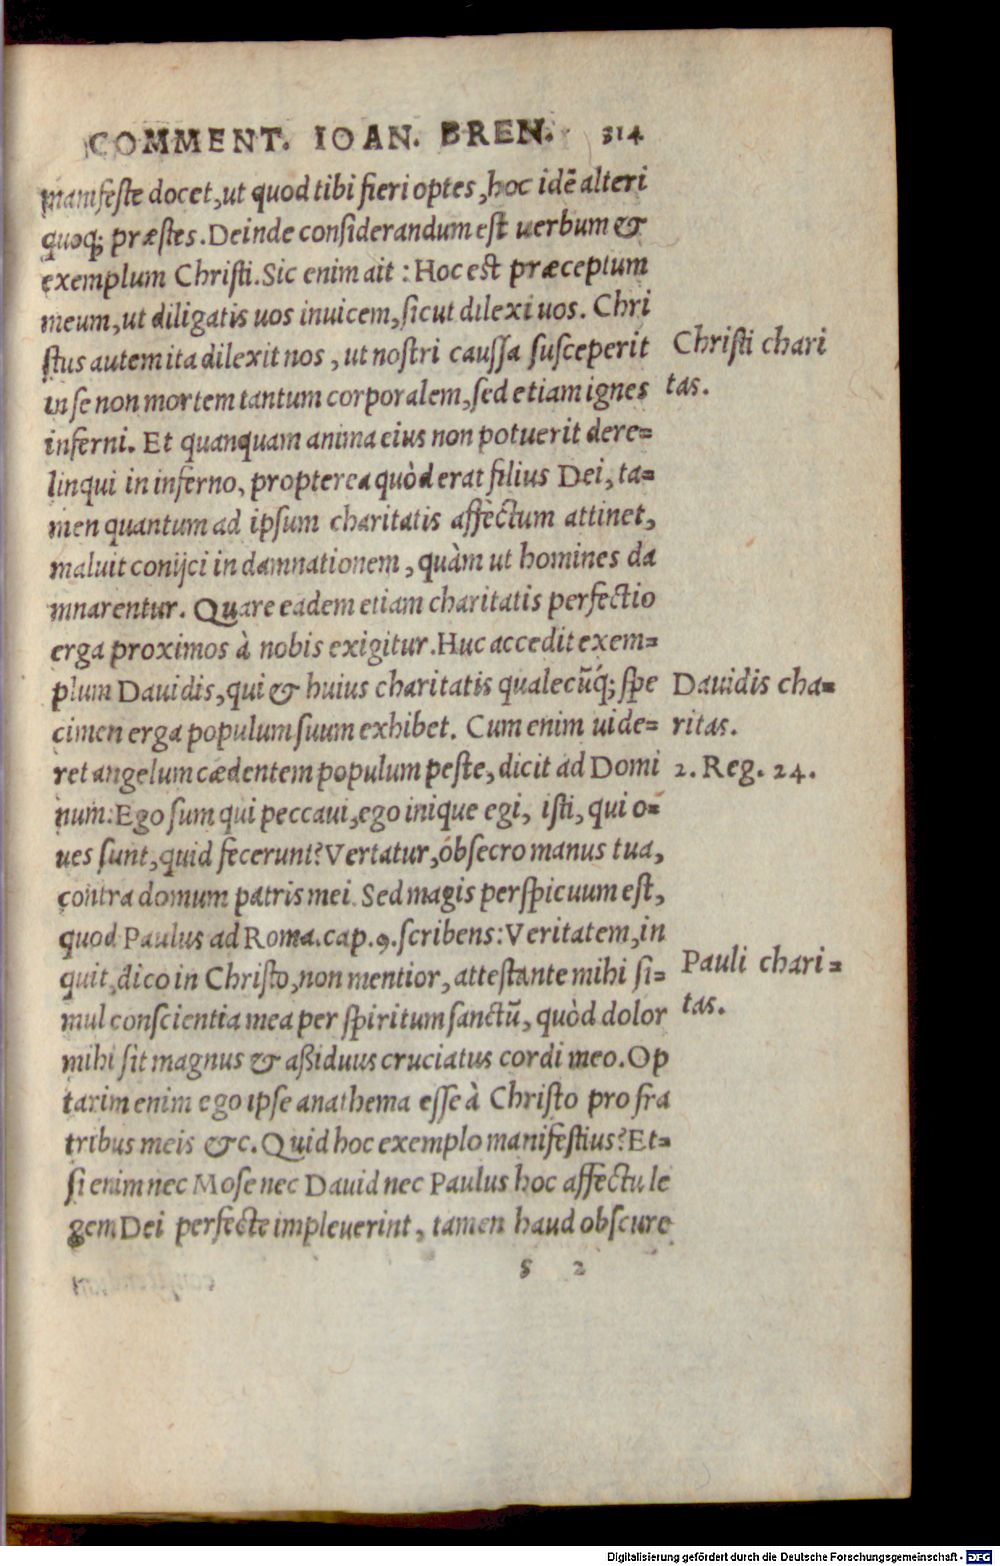 COMMENT. IOAN. BREN. 314
manifeste docet, ut quod tibi fieri optes, hoc idē alteri
quoq; præstes. Deinde considerandum est uerbum &
exemplum Christi. Sic enim ait : Hoc est præceptum
meum, ut diligatis uos inuicem, sicut dilexi uos. Chri
stus autem ita dilexit nos, ut nostri caussa susceperit
in se non mortem tantum corporalem, sed etiam ignes
inferni. Et quanquam anima eius non potuerit dere=
linqui in inferno, propterea quòd erat filius Dei, ta=
men quantum ad ipsum charitatis affectum attinet,
maluit conijci in damnationem, quàm ut homines da
mnarentur. Quare eadem etiam charitatis perfectio
erga proximos à nobis exigitur. Huc accedit exem=
plum Dauidis, qui & huius charitatis qualecūq́; spe
cimen erga populum suum exhibet. Cum enim uide=
ret angelum cædentem populum peste, dicit ad Domi
num: Ego sum qui peccaui, ego inique egi, isti, qui o=
ues sunt, quid fecerunt? Vertatur, obsecro manus tua,
contra domum patris mei. Sed magis perspicuum est,
quod Paulus ad Roma. cap. 9. scribens: Veritatem, in
quit, dico in Christo, non mentior, attestante mihi si=
mul conscientia mea per spiritum sanctū, quòd dolor
mihi sit magnus & aßiduus cruciatus cordi meo. Op
tarim enim ego ipse anathema esse à Christo pro fra
tribus meis &c. Quid hoc exemplo manifestius? Et=
si enim nec Mose nec Dauid nec Paulus hoc affectu le
gem Dei perfecte impleuerint, tamen haud obscure
s 2
Christi chari
tas.
Dauidis cha=
ritas.
2. Reg. 24.
Pauli chari=
tas.
Digitalisierung gefördert durch die Deutsche Forschungsgemeinschaft - DFG